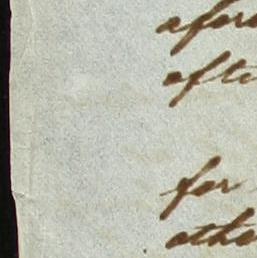 afore
after
for
othe